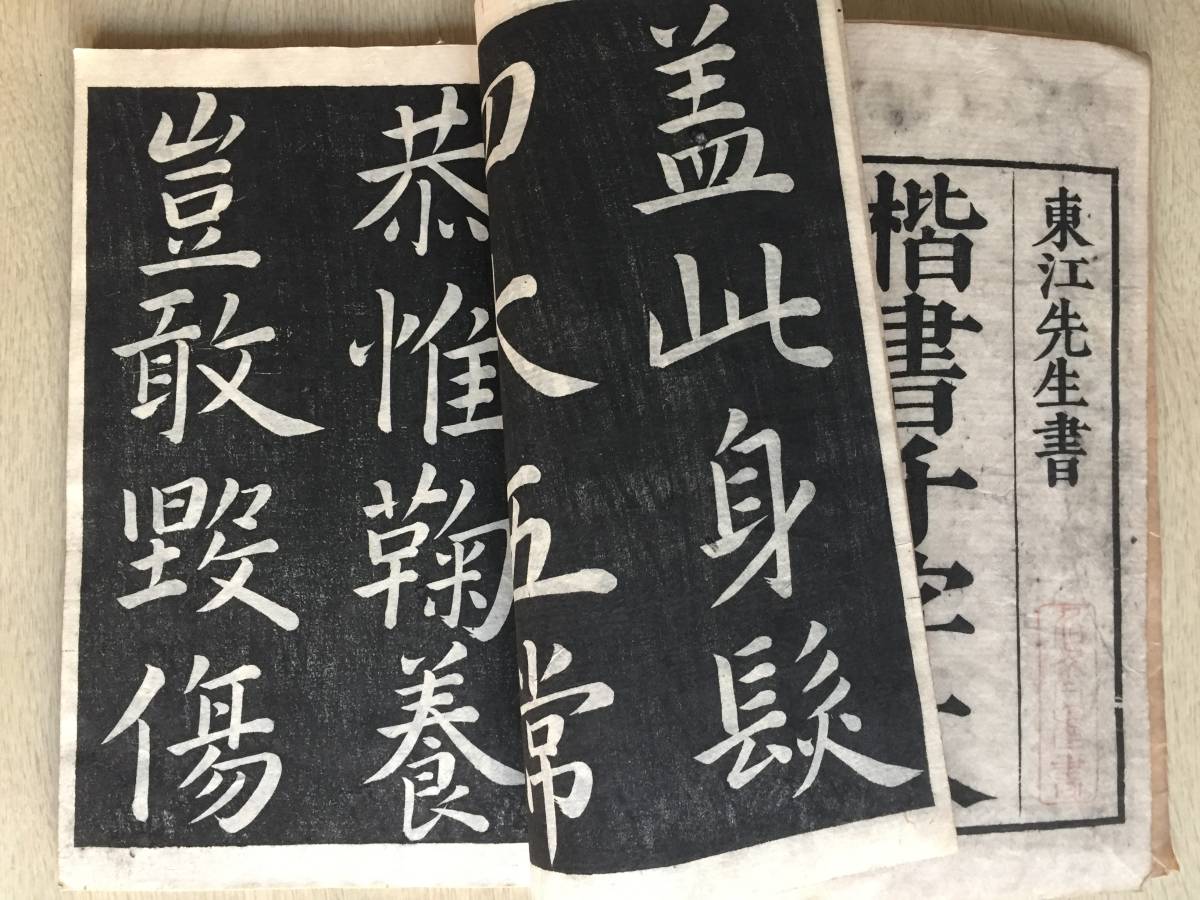 東江先生書
楷書千字文
盖此身髮
四大五常
恭惟鞠養
豈敢毁傷